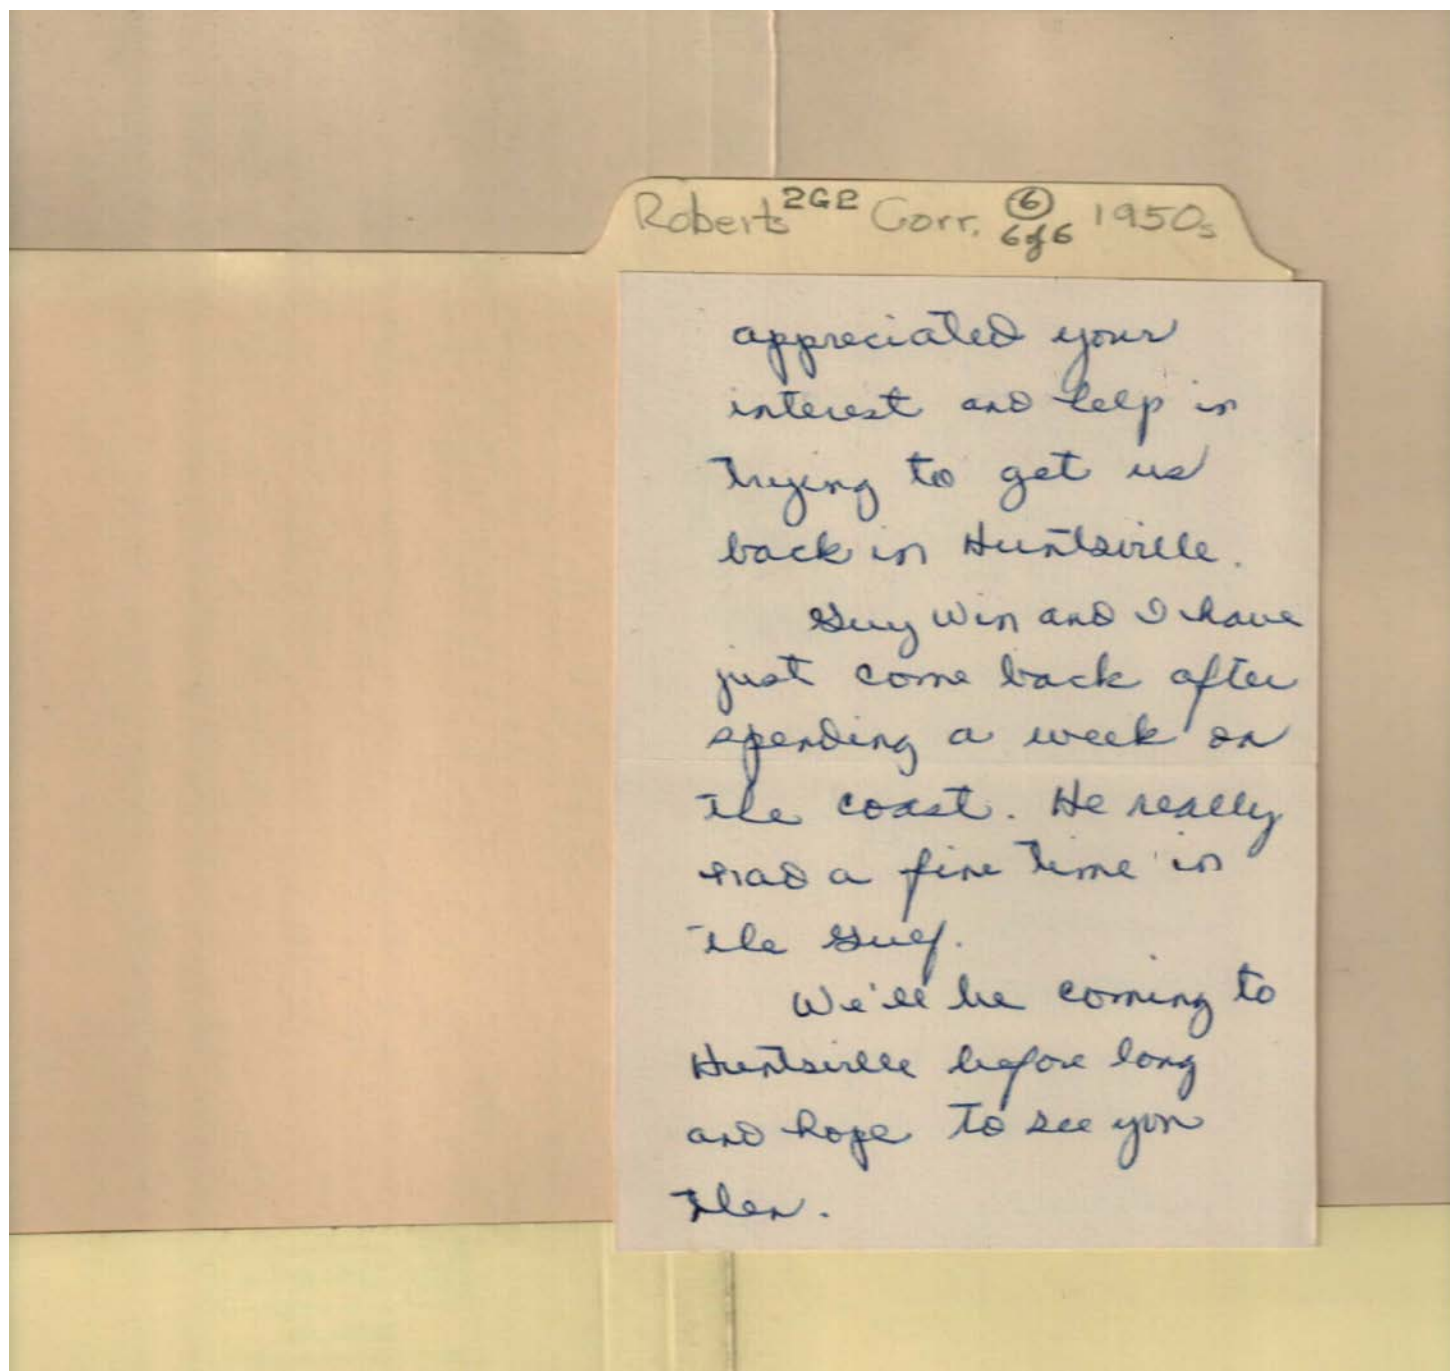 Roberts 2G2 Corr. 6 1950s
6 of 6
appreciated your
interest and help in
trying to get us
back in Huntsville.
Guy Win and I have
just come back after
spending a week on
the coast. He really
had a fine time in
the Gulf.
We'll be coming to
Huntsville before long
and hope to see you
then.